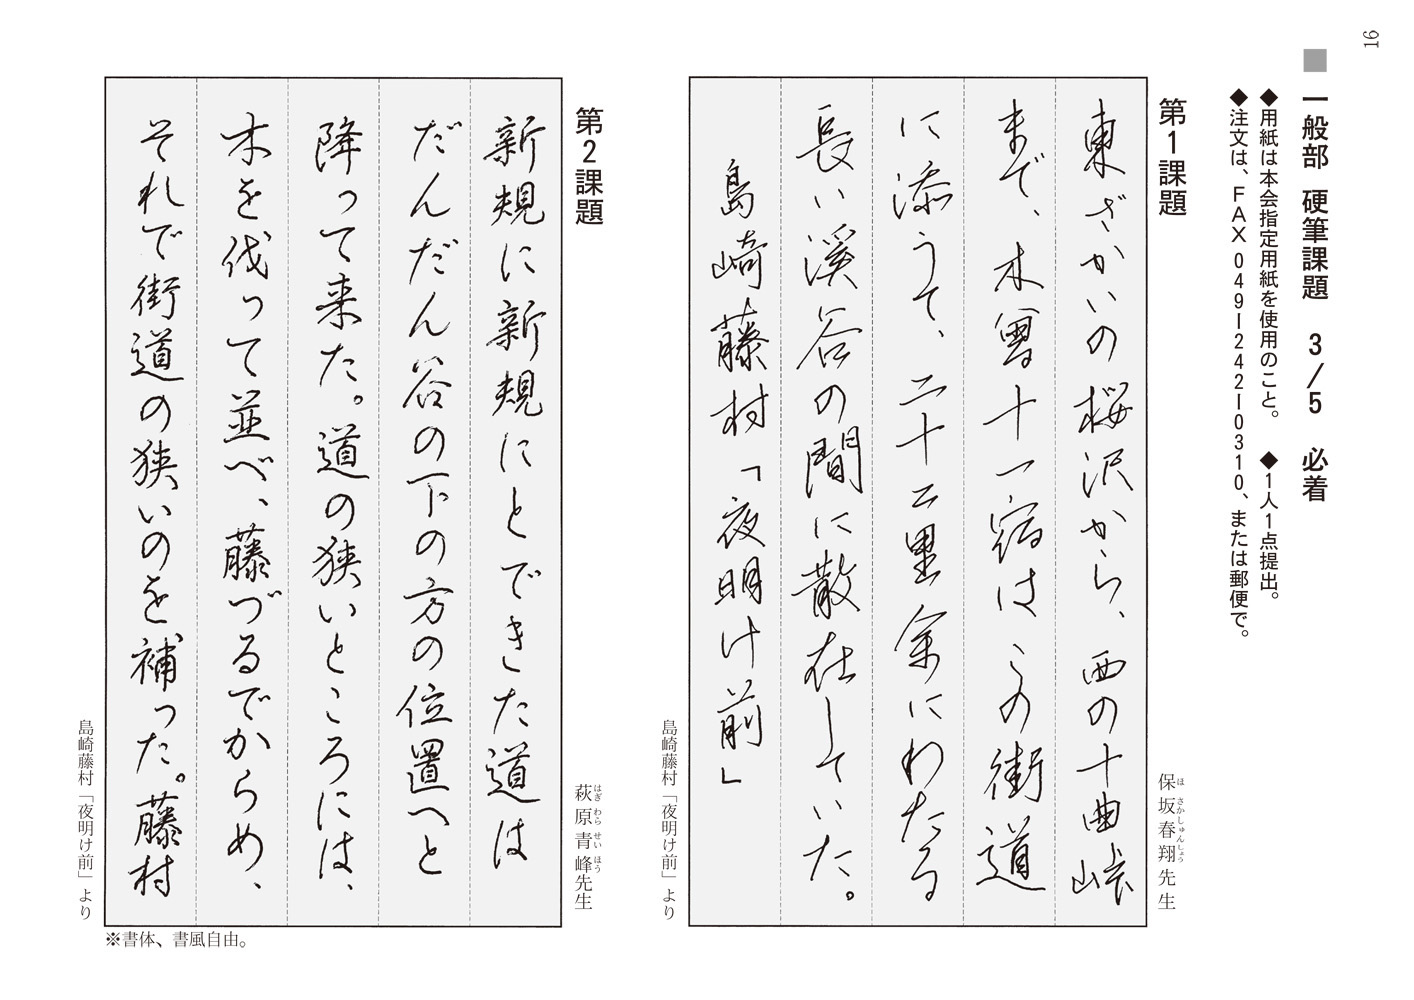 16
■一般部 硬筆課題 3/5 必着
◆用紙は本会指定用紙を使用のこと。 ◆1人1点提出。
◆注文は、FAX 049-242-0310、または郵便で。
第1課題
保坂春翔先生
ほさかしゅんしょう
東ざかいの桜沢から、西の十曲峠
まで、木曽十一宿はこの街道
に添うて、二十二里余にわたる
長い溪谷の間に散在していた。
島崎藤村「夜明け前」
島崎藤村「夜明け前」より
第2課題
萩原青峰先生
はぎわらせいほう
新規に新規にとできた道は
だんだん谷の下の方の位置へと
降って来た。道の狭いところには、
木を伐って並べ、藤づるでからめ、
それで街道の狭いのを補った。藤村
島崎藤村「夜明け前」より
※書体、書風自由。